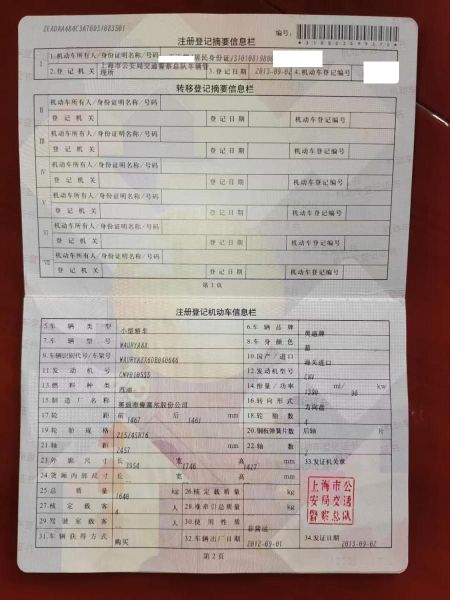 注册登记摘要信息栏
编号:
I 1.机动车所有人/身份证明名称/号码 居民身份证/
2.登记机关 上海市公安局交通警察总队车辆管理所 3.登记日期 2013-09-02 4.机动车登记编号
转移登记摘要信息栏
II 机动车所有人/身份证明名称/号码
登记机关 登记日期 机动车登记编号
III 机动车所有人/身份证明名称/号码
登记机关 登记日期 机动车登记编号
IV 机动车所有人/身份证明名称/号码
登记机关 登记日期 机动车登记编号
V 机动车所有人/身份证明名称/号码
登记机关 登记日期 机动车登记编号
VI 机动车所有人/身份证明名称/号码
登记机关 登记日期 机动车登记编号
VII 机动车所有人/身份证明名称/号码
登记机关 登记日期 机动车登记编号
第1页
注册登记机动车信息栏
5.车辆类型 小型轿车 6.车辆品牌 奥迪牌
7.车辆型号 WAURYA8X 8.车身颜色
9.车辆识别代号/车架号 10.国产/进口 海关进口
11.发动机号 12.发动机型号
13.燃料种类 汽油 14.排量/功率 ml/ kw
15.制造厂名称 16.转向形式 方向盘
17.轮距 前 1467 后 1461 mm 18.轮胎数 4
19.轮胎规格 215/45R16 20.钢板弹簧片数 后轴 片
21.轴距 mm 22.轴数 2
23.外廓尺寸 长 宽 高 mm 33.发证机关章
24.货厢内部尺寸 长 宽 高 mm
25.总质量 1640 kg 26.核定载质量 kg
27.核定载客 4 人 28.准牵引总质量 kg
29.驾驶室载客 人 30.使用性质 非营运
31.车辆获得方式 购买 32.车辆出厂日期 2012-09-01 34.发证日期 2013-09-02
上海市公
安局交通
警察总队
第2页